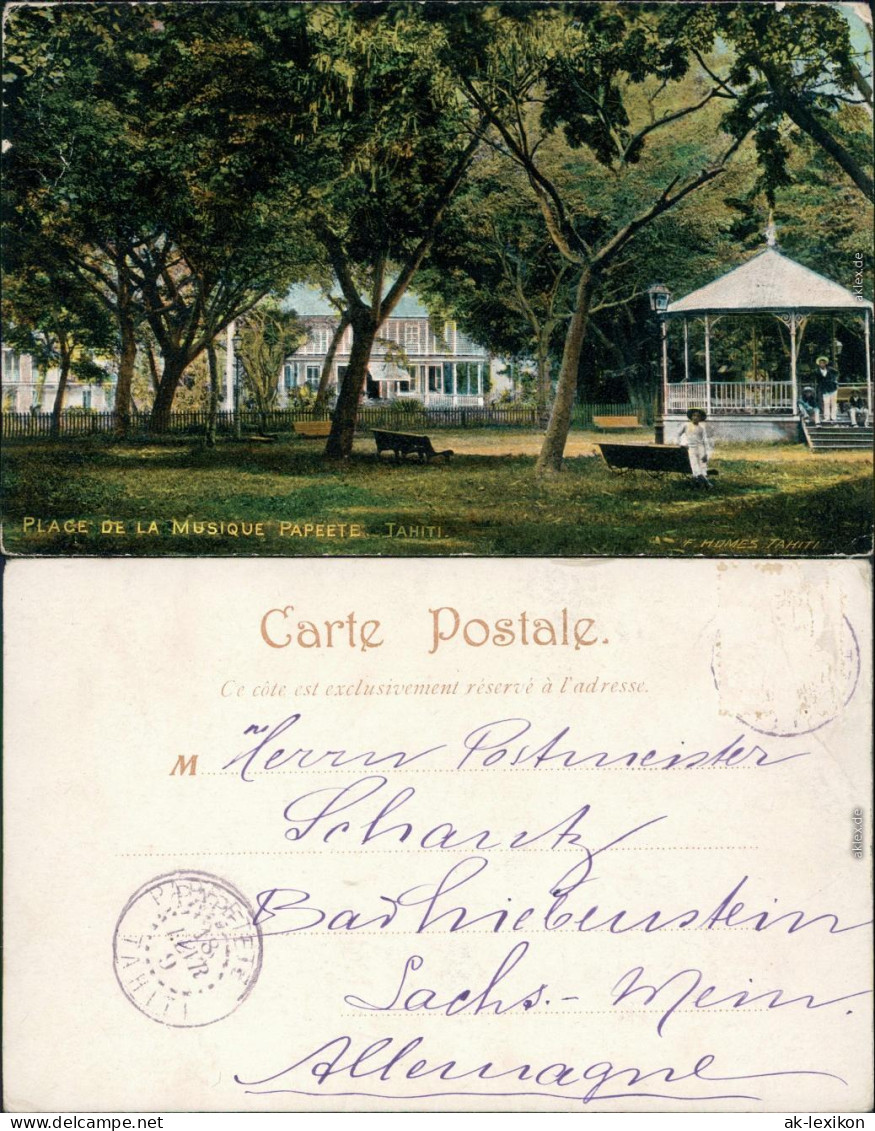 PLACE DE LA MUSIQUE PAPEETE. TAHITI.
F. HOMES. TAHITI
aklex.de
Carte Postale.
Ce côte est exclusivement réservé à l'adresse.
M Herrn Postmeister
Schantz
Bad Liebenstein
Sachs.- Mein.
Allemagne
PAPEETE
18
AVR
TAHITI
aklex.de
ak-lexikon